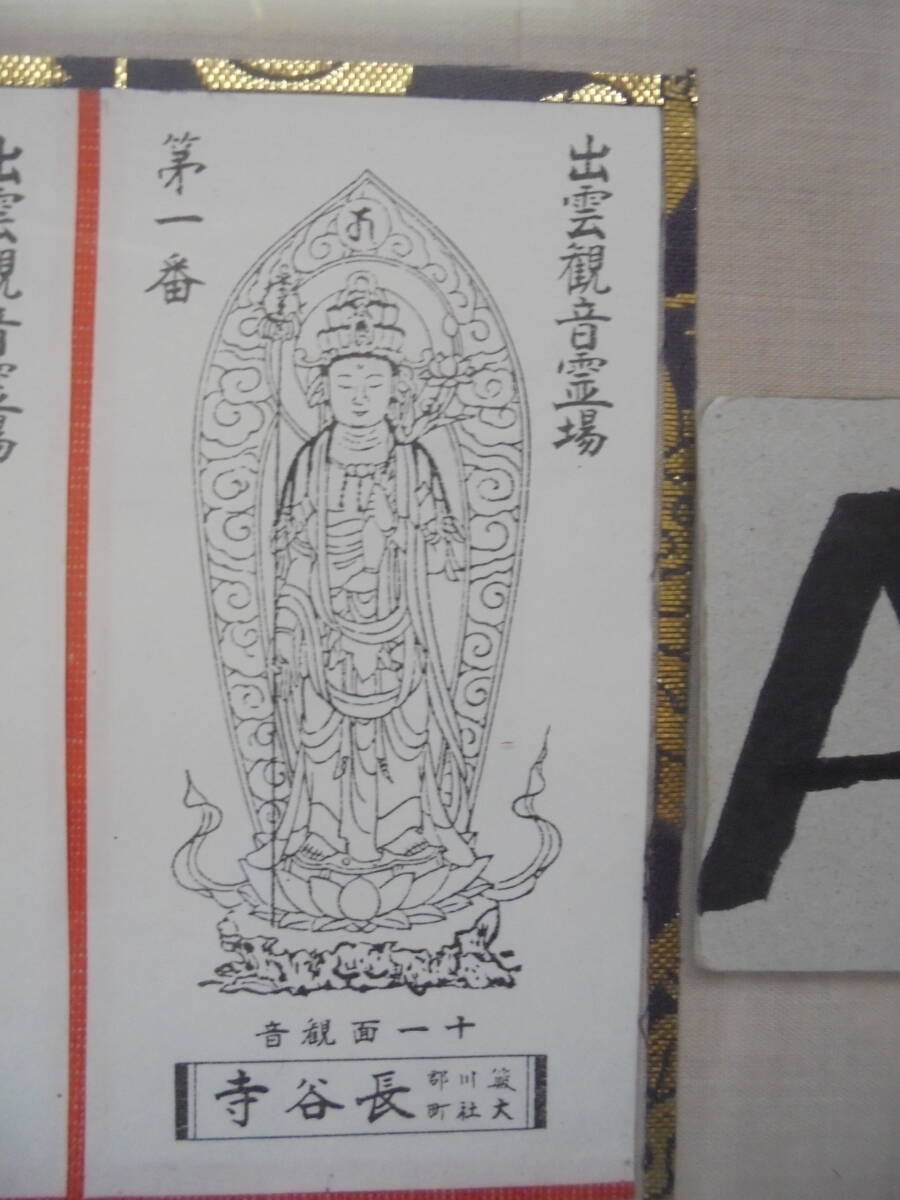 出雲観音霊場
第一番
十一面観音
簸川郡
大社町
長谷寺
出雲観音霊場
A